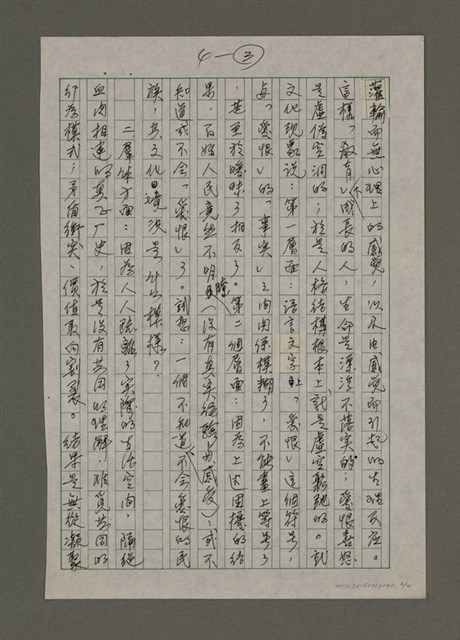 4—③
灌輸而無心理上的感覺，以及由感覺而引起的生理反應。
這樣「教育」不成長的人，生命是漂浮不落實的；愛恨喜怒
是虛偽空洞的；於是人格結構根本上就是虛空鬆馳的。就
文化現象說：第一層面：語言文字上，「愛恨」這個符號，
與「愛恨」的「事實」之間關係模糊了，不能畫上等號了
，甚至於曖昧了相反了。第二個層面：因為上因困擾的結
果，百姓人民竟然不明瞭（沒有真實經驗與感受），或不
知道或不會「愛恨」了。試想：一個不知道不會愛恨的民
族，其文化境況是什么模樣？
二羣体方面：因為人人疏離了實際的生活空間，隔絕
血肉相連的真正歷史，於是沒有共同的理解，难覓共同的
行為模式；矛盾衝突、價值取向割裂。結果是無從凝聚